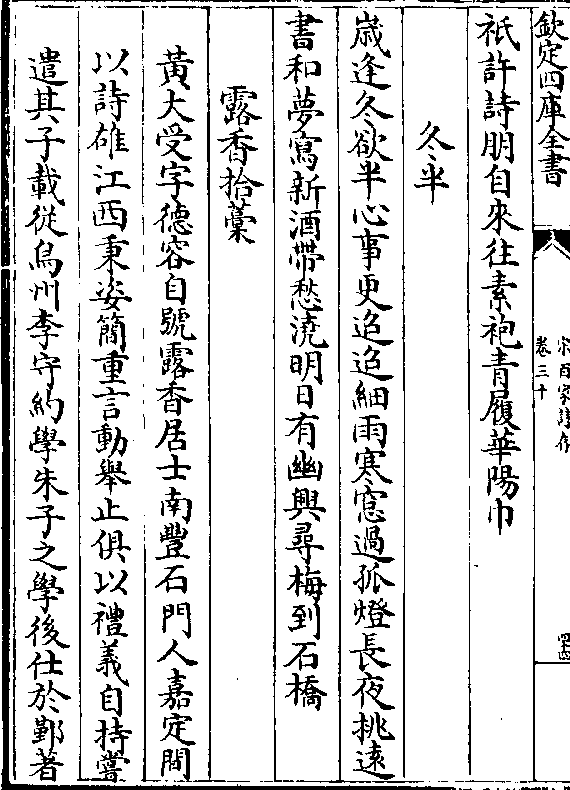 欽定四庫全書
宋百家詩存
卷三十
祇許詩朋自來往素袍青履華陽巾
冬半
歲逢冬欲半心事更迢迢細雨寒窓過孤燈長夜挑遠
書和夢寫新酒帶愁澆明日有幽興尋梅到石橋
露香拾藁
黃大受字德容自號露香居士南豐石門人嘉定間
以詩雄江西秉姿簡重言動舉止俱以禮義自持嘗
遣其子載從烏州李守約學朱子之學後仕於鄞著